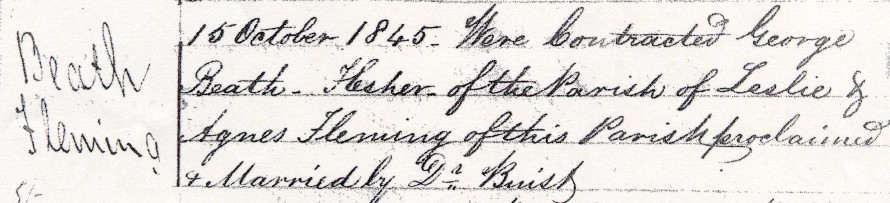 Beath
Fleming
5/-
15 October 1845 - Were Contracted George
Beath - Flesher - of the Parish of Leslie &
Agnes Fleming of this Parish proclaimed
& Married by Dr Buist